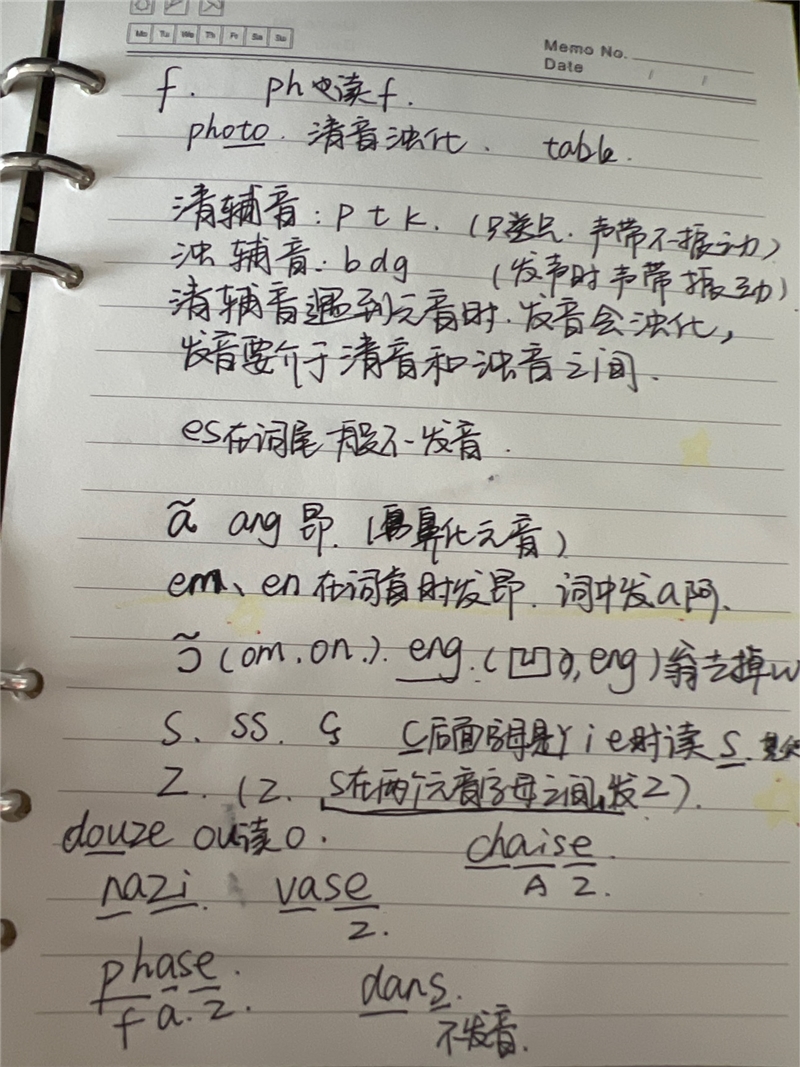 Mo Tu We Th Fr Sa Su
Memo No.
Date / /
f. ph也读f.
photo. 清音浊化. table.
清辅音:p t k. (只送气.声带不振动)
浊辅音:b d g (发声时声带振动)
清辅音遇到元音时.发音会浊化,
发音要介于清音和浊音之间.
es在词尾一般不发音.
ã ang 昂.(鼻化元音)
em、en在词首时发昂.词中发a阿.
ɔ̃ (om.on.). eng.(凹,eng)翁去掉w
S. SS. Ç C后面字母是Y i e时读S.
Z. (Z. S在两个元音字母之间,发Z).
douze ou读o.
chaise.
A Z.
nazi. vase
Z.
phase.
f a. Z.
dans.
不发音.